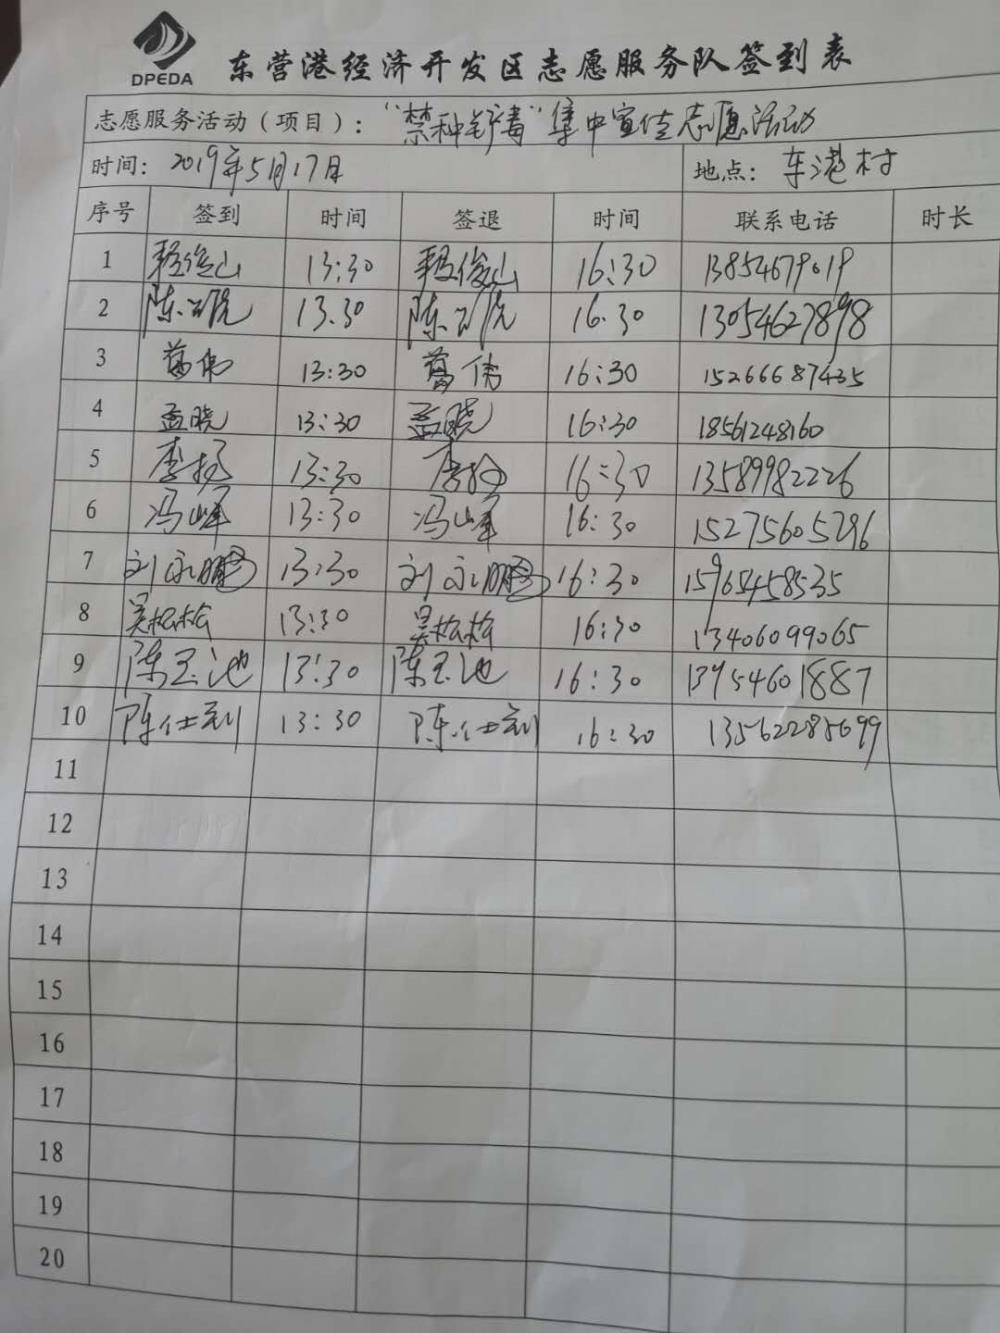 DPEDA
东营港经济开发区志愿服务队签到表
志愿服务活动（项目）：“禁种铲毒”集中宣传志愿活动
时间：2019年5月17日 地点：东港村
序号 签到 时间 签退 时间 联系电话 时长
1 程俊山 13:30 程俊山 16:30 13854679019
2 陈 13.30 陈 16.30 13054627898
3 葛伟 13:30 葛伟 16:30 15266687435
4 孟晓 13:30 孟晓 16:30 18561248160
5 李扬 13:30 李扬 16:30 13589982226
6 冯峰 13:30 冯峰 16:30 15275605796
7 刘永鹏 13:30 刘永鹏 16:30 15965458535
8 吴松松 13:30 吴松松 16:30 13406099065
9 陈玉池 13:30 陈玉池 16:30 13954601887
10 陈仕利 13:30 陈仕利 16:30 13562285699
11
12
13
14
15
16
17
18
19
20